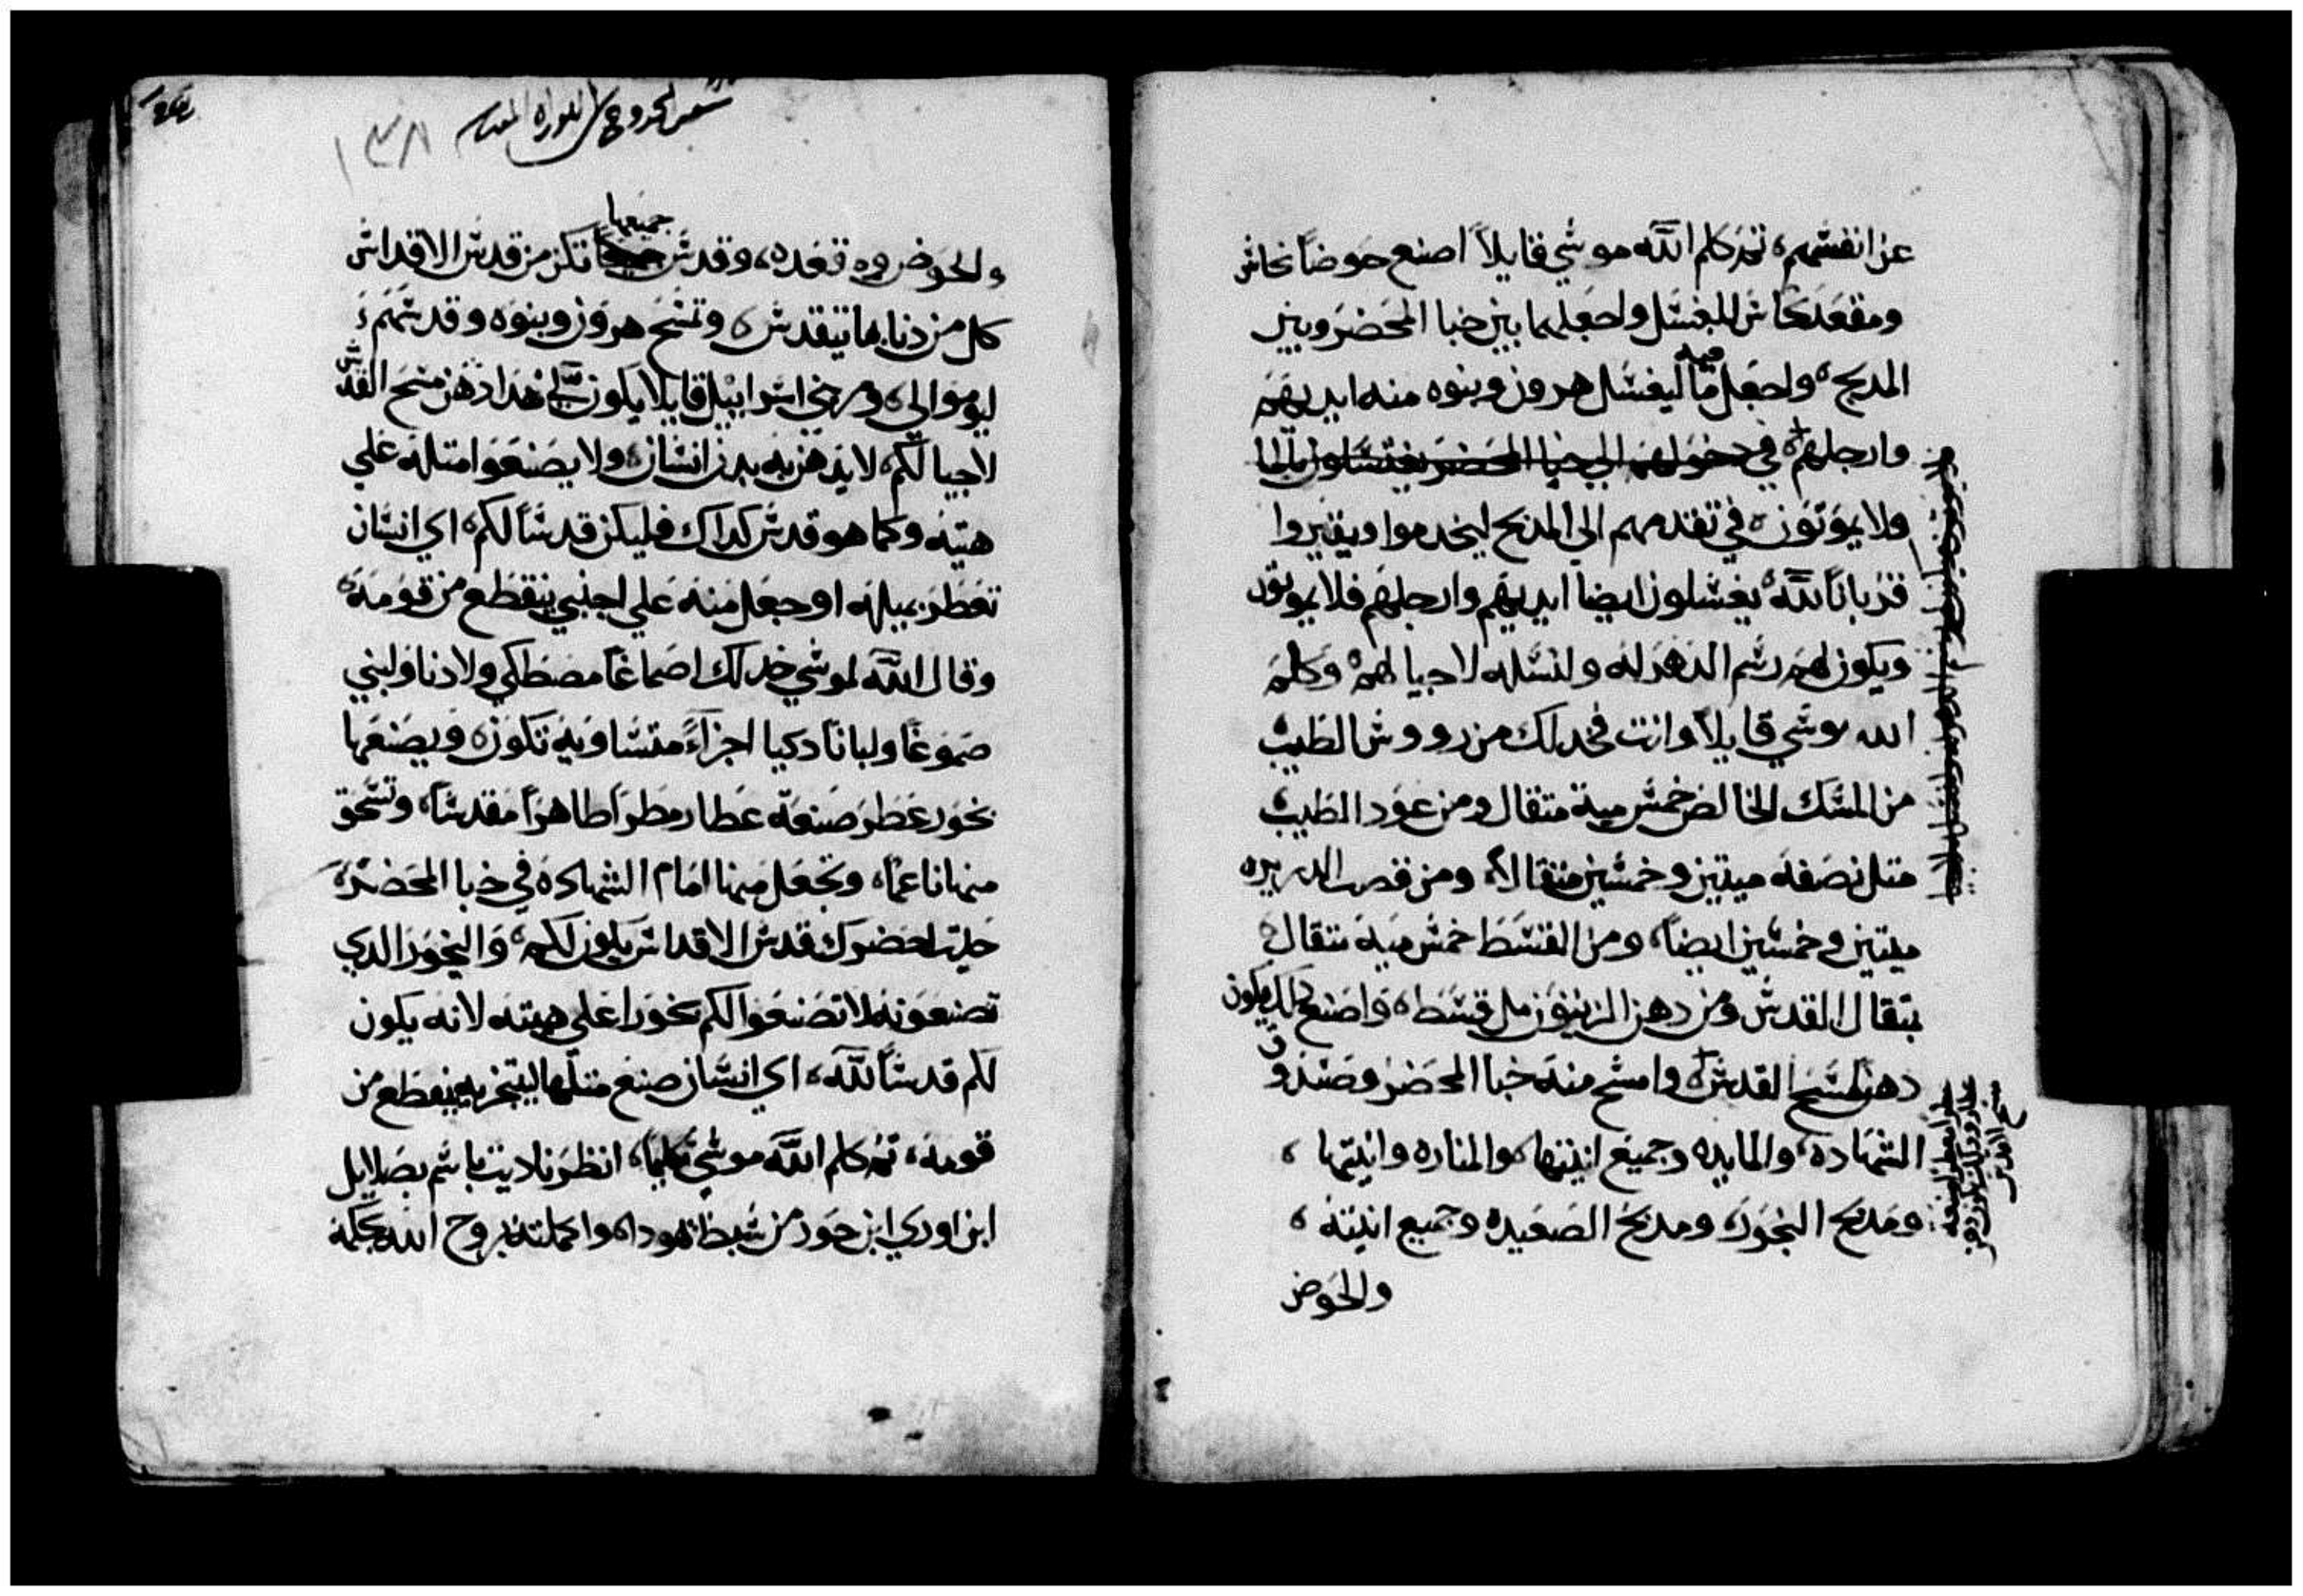 عن انفسهم، ثم كلم الله موسي قايلاً اصنع حوضاً نحاس
ومقعد نحاس للغسل واجعلهما بين خبا المحضر وبين
المدبح، واجعل فيه مآ ليغسل هرون وبنوه منه ايديهم
وارجلهم، في دخولهم الي خبا المحضر يغتسلون بالما
ولا يموتون، في تقدمهم الي المدبح ليخدموا ويقتروا
قرباناً لله، يغسلون ايضاً ايديهم وارجلهم فلا يموتون
ويكون لهم رسم الدهر له ولنسله لاجيالهم، وكلم
الله موسي قايلاً وانت فخد لك من رووس الطيب
من المسك الخالص خمس مية متقال ومن عود الطيب
متل نصفه ميتين وخمسين متقالاً، ومن قصب الدريره
ميتين وخمسين ايضاً، ومن القسط خمس مية متقال
بمتقال القدس ومن دهن الزيتون مل قسط، واصنع دلك يكون
دهن لمسح القدس، وامسح منه خبا المحضر وصندوق
الشهادة، والمايده وجميع انيتها، والمناره وانيتها،
ومدبح البخور، ومدبح الصعيده وجميع انيته،
والحوض
سفر الخروج من التوراه المقدسه
١٣٨
والحوض وقعده، وقدس جميعها تكن من قدس الاقداس
كل من دنا بها تيقدس، وتمسح هرون وبنوه وقدسهم
ليوموا لي، ومر بني اسراييل قايلا يكون لي هدا دهن مسح القدس
لاجيالكم، لا يدهن به بدن انسان، ولا يصنعوا متله علي
هيته وكما هو قدس كداك فليكن قدساً لكم، اي انسان
تعطر بميله او جعل منه علي اجنبي ينقطع من قومه،
وقال الله لموسي خد لك اصماغاً مصطكي ولادنا ولبني
صموغاً ولباناً دكيا اجزاءً متساويه تكون، ويصنعها
بخور عطر صنعة عطار مطراً طاهراً مقدساً، وتسحق
منها ناعماً، وتجعل منها امام الشهادة في خبا المحضر،
حيت احضرك قدس الاقداس يكون لكم، والبخور الدي
تصنعونه لا تصنعوا لكم بخورا علي هيته لانه يكون
لكم قدساً لله، اي انسان صنع متلها ليتبخر به ينقطع من
قومه، ثم كلم الله موسي تكليماً، انظر ناديت باسم بصلايل
ابن اوري ابن حور من سبط يهودا، واكملته بروح الله بحكمة